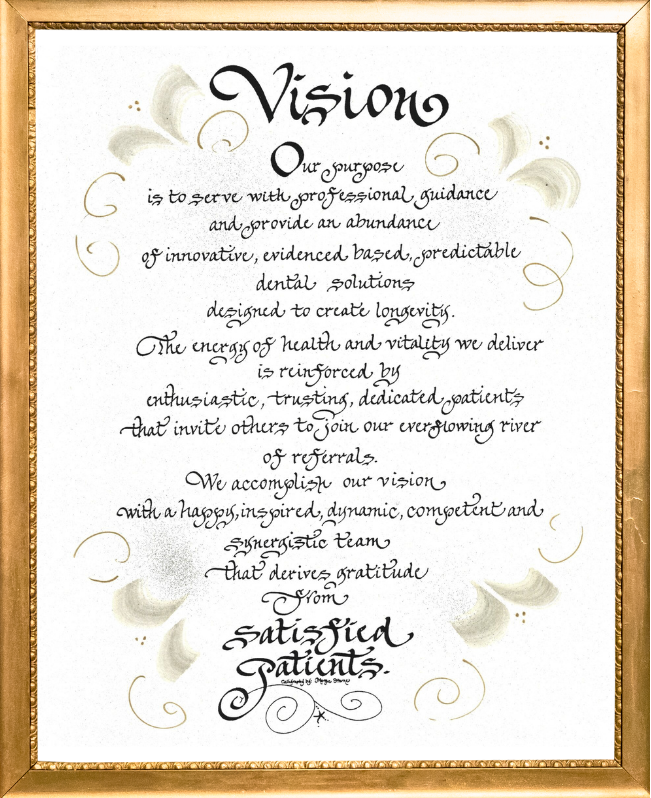 Vision
Our purpose
is to serve with professional guidance
and provide an abundance
of innovative, evidenced based, predictable
dental solutions
designed to create longevity.
The energy of health and vitality we deliver
is reinforced by
enthusiastic, trusting, dedicated patients
that invite others to join our everflowing river
of referrals.
We accomplish our vision
with a happy, inspired, dynamic, competent and
synergistic team
that derives gratitude
from
satisfied
patients.
Calligraphy by